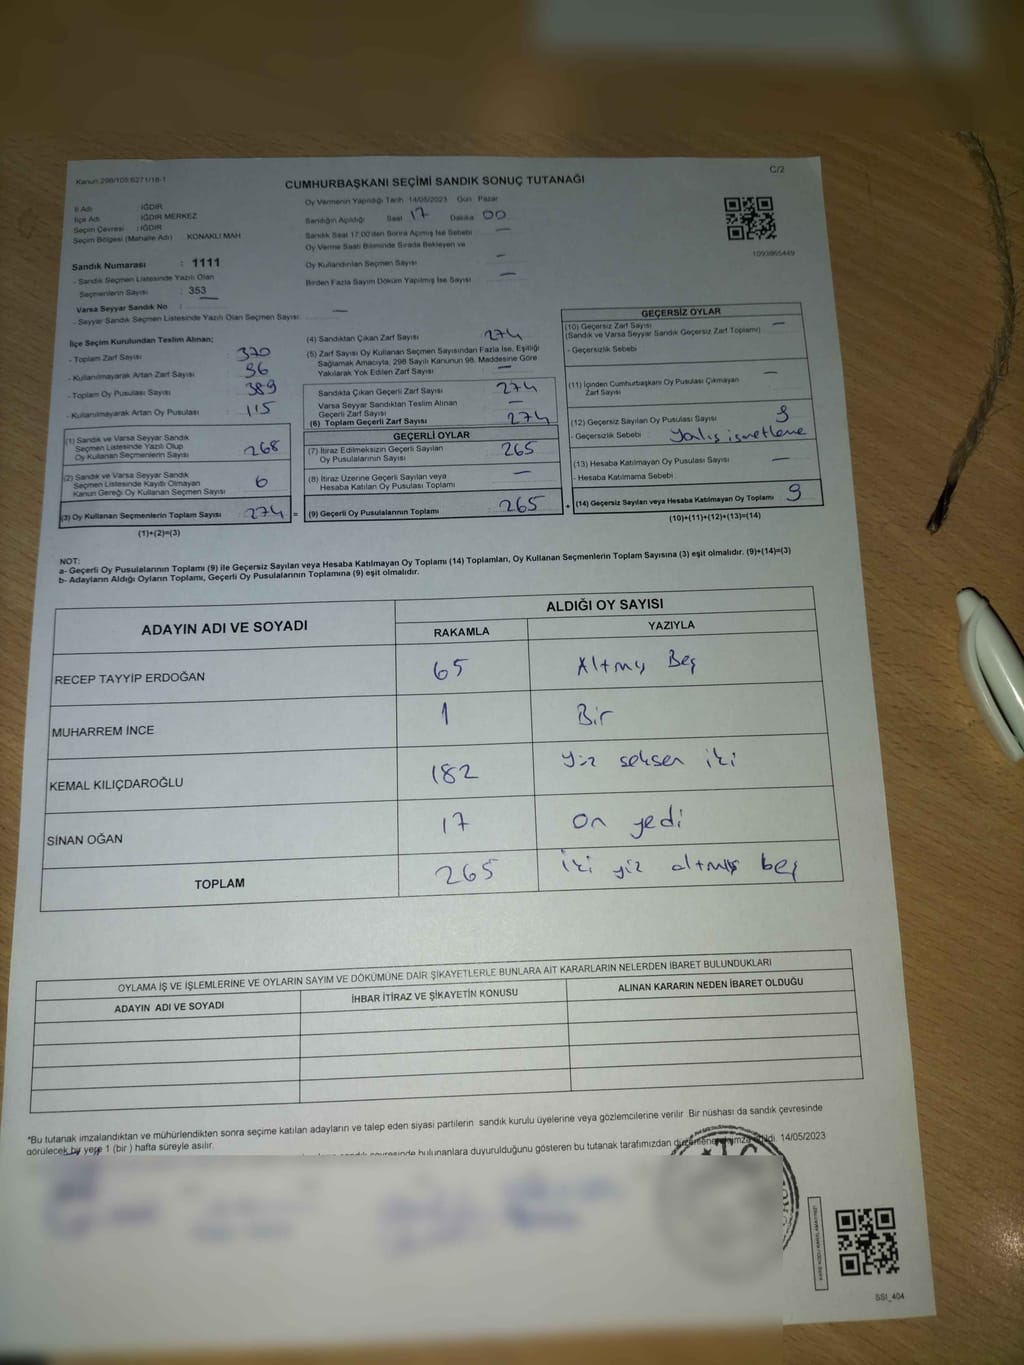 Kanun:298/105;6271/18-1
C/2
CUMHURBAŞKANI SEÇİMİ SANDIK SONUÇ TUTANAĞI
İl Adı : IĞDIR
İlçe Adı : IĞDIR MERKEZ
Seçim Çevresi : IĞDIR
Seçim Bölgesi (Mahalle Adı) KONAKLI MAH
Oy Vermenin Yapıldığı Tarih 14/05/2023 Gün Pazar
Sandığın Açıldığı Saat 17 Dakika 00
Sandık Saat 17:00'den Sonra Açılmış İse Sebebi —
Oy Verme Saati Bitiminde Sırada Bekleyen ve
Oy Kullandırılan Seçmen Sayısı —
Birden Fazla Sayım Döküm Yapılmış İse Sayısı —
1093865449
Sandık Numarası : 1111
- Sandık Seçmen Listesinde Yazılı Olan
Seçmenlerin Sayısı : 353
Varsa Seyyar Sandık No : —
- Seyyar Sandık Seçmen Listesinde Yazılı Olan Seçmen Sayısı: —
İlçe Seçim Kurulundan Teslim Alınan;
- Toplam Zarf Sayısı : 370
- Kullanılmayarak Artan Zarf Sayısı : 96
- Toplam Oy Pusulası Sayısı : 389
- Kullanılmayarak Artan Oy Pusulası : 115
(1) Sandık ve Varsa Seyyar Sandık
Seçmen Listesinde Yazılı Olup
Oy Kullanan Seçmenlerin Sayısı : 268
(2) Sandık ve Varsa Seyyar Sandık
Seçmen Listesinde Kayıtlı Olmayan
Kanun Gereği Oy Kullanan Seçmen Sayısı : 6
(3) Oy Kullanan Seçmenlerin Toplam Sayısı : 274 =
(1)+(2)=(3)
(4) Sandıktan Çıkan Zarf Sayısı 274
(5) Zarf Sayısı Oy Kullanan Seçmen Sayısından Fazla İse, Eşitliği
Sağlamak Amacıyla; 298 Sayılı Kanunun 98. Maddesine Göre
Yakılarak Yok Edilen Zarf Sayısı —
Sandıkta Çıkan Geçerli Zarf Sayısı 274
Varsa Seyyar Sandıktan Teslim Alınan
Geçerli Zarf Sayısı —
(6) Toplam Geçerli Zarf Sayısı 274
GEÇERLİ OYLAR
(7) İtiraz Edilmeksizin Geçerli Sayılan
Oy Pusulalarının Sayısı 265
(8) İtiraz Üzerine Geçerli Sayılan veya
Hesaba Katılan Oy Pusulası Toplamı —
(9) Geçerli Oy Pusulalarının Toplamı 265 +
GEÇERSİZ OYLAR
(10) Geçersiz Zarf Sayısı —
(Sandık ve Varsa Seyyar Sandık Geçersiz Zarf Toplamı)
- Geçersizlik Sebebi
(11) İçinden Cumhurbaşkanı Oy Pusulası Çıkmayan
Zarf Sayısı —
(12) Geçersiz Sayılan Oy Pusulası Sayısı 9
- Geçersizlik Sebebi : Yanlış işaretleme
(13) Hesaba Katılmayan Oy Pusulası Sayısı —
- Hesaba Katılmama Sebebi
(14) Geçersiz Sayılan veya Hesaba Katılmayan Oy Toplamı 9
(10)+(11)+(12)+(13)=(14)
NOT:
a- Geçerli Oy Pusulalarının Toplamı (9) ile Geçersiz Sayılan veya Hesaba Katılmayan Oy Toplamı (14) Toplamları, Oy Kullanan Seçmenlerin Toplam Sayısına (3) eşit olmalıdır. (9)+(14)=(3)
b- Adayların Aldığı Oyların Toplamı, Geçerli Oy Pusulalarının Toplamına (9) eşit olmalıdır.
ADAYIN ADI VE SOYADI
ALDIĞI OY SAYISI
RAKAMLA
YAZIYLA
RECEP TAYYİP ERDOĞAN 65 Altmış Beş
MUHARREM İNCE 1 Bir
KEMAL KILIÇDAROĞLU 182 Yüz seksen iki
SİNAN OĞAN 17 On yedi
TOPLAM 265 İki yüz altmış beş
OYLAMA İŞ VE İŞLEMLERİNE VE OYLARIN SAYIM VE DÖKÜMÜNE DAİR ŞİKAYETLERLE BUNLARA AİT KARARLARIN NELERDEN İBARET BULUNDUKLARI
ADAYIN ADI VE SOYADI
İHBAR İTİRAZ VE ŞİKAYETİN KONUSU
ALINAN KARARIN NEDEN İBARET OLDUĞU
*Bu tutanak imzalandıktan ve mühürlendikten sonra seçime katılan adayların ve talep eden siyasi partilerin sandık kurulu üyelerine veya gözlemcilerine verilir Bir nüshası da sandık çevresinde
görülecek bir yere 1 (bir ) hafta süreyle asılır.
bulunanlara duyurulduğunu gösteren bu tutanak tarafımızdan 14/05/2023
T.C.
SSI_404